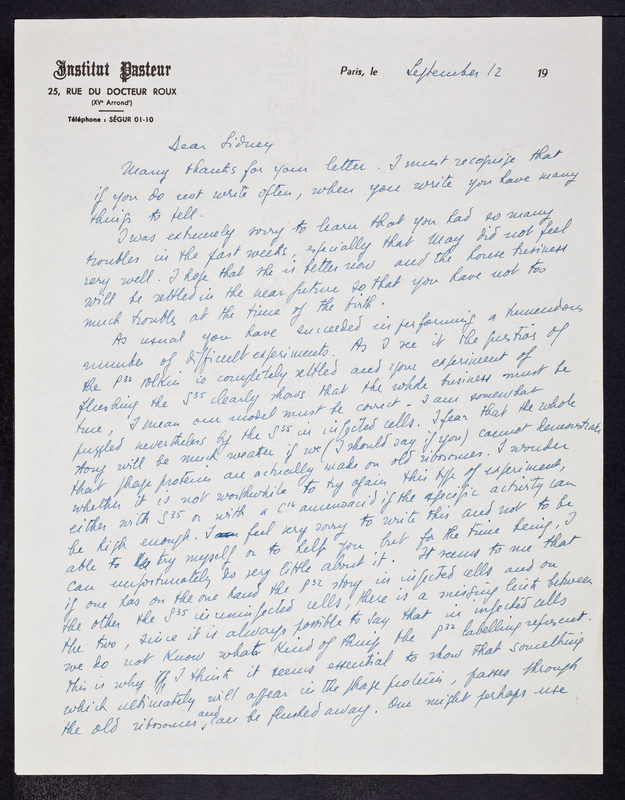 Institut Pasteur
25, RUE DU DOCTEUR ROUX
(XVe Arrondt)
Téléphone : SÉGUR 01-10
Paris, le September 12 19
Dear Sidney
Many thanks for your letter. I must recognize that
if you do not write often, when you write you have many
things to tell.
I was extremely sorry to learn that you had so many
troubles in the past weeks, especially that May did not feel
very well. I hope that she is better now and the house business
will be settled in the near future so that you have not too
much troubles at the time of the birth.
As usual you have succeeded in performing a tremendous
number of difficult experiments. As I see it the question of
the P32 is completely settled and your experiment of
flushing the S35 clearly shows that the whole business must be
true, I mean our model must be correct. I am somewhat
puzzled nevertheless by the S35 in infected cells. I fear that the whole
story will be much weaker if we (I should say if you) cannot demonstrate
that phage proteins are actually made on old ribosomes. I wonder
whether it is not worthwhile to try again this type of experiment,
either with S35 or with a C14 aminoacid if the specific activity can
be high enough. I feel very sorry to write this and not to be
able to try myself or to help you but for the time being, I
can unfortunately do very little about it. It seems to me that
if one has on the one hand the P32 story in infected cells and on
the other the S35 in uninfected cells, there is a missing link between
the two, since it is always possible to say that in infected cells
we do not know what kind of thing the P32 labelling represent.
this is why I think it seems essential to show that something
which ultimately will appear in the phage proteins, passes through
the old ribosomes and can be flushed away. One might perhaps use